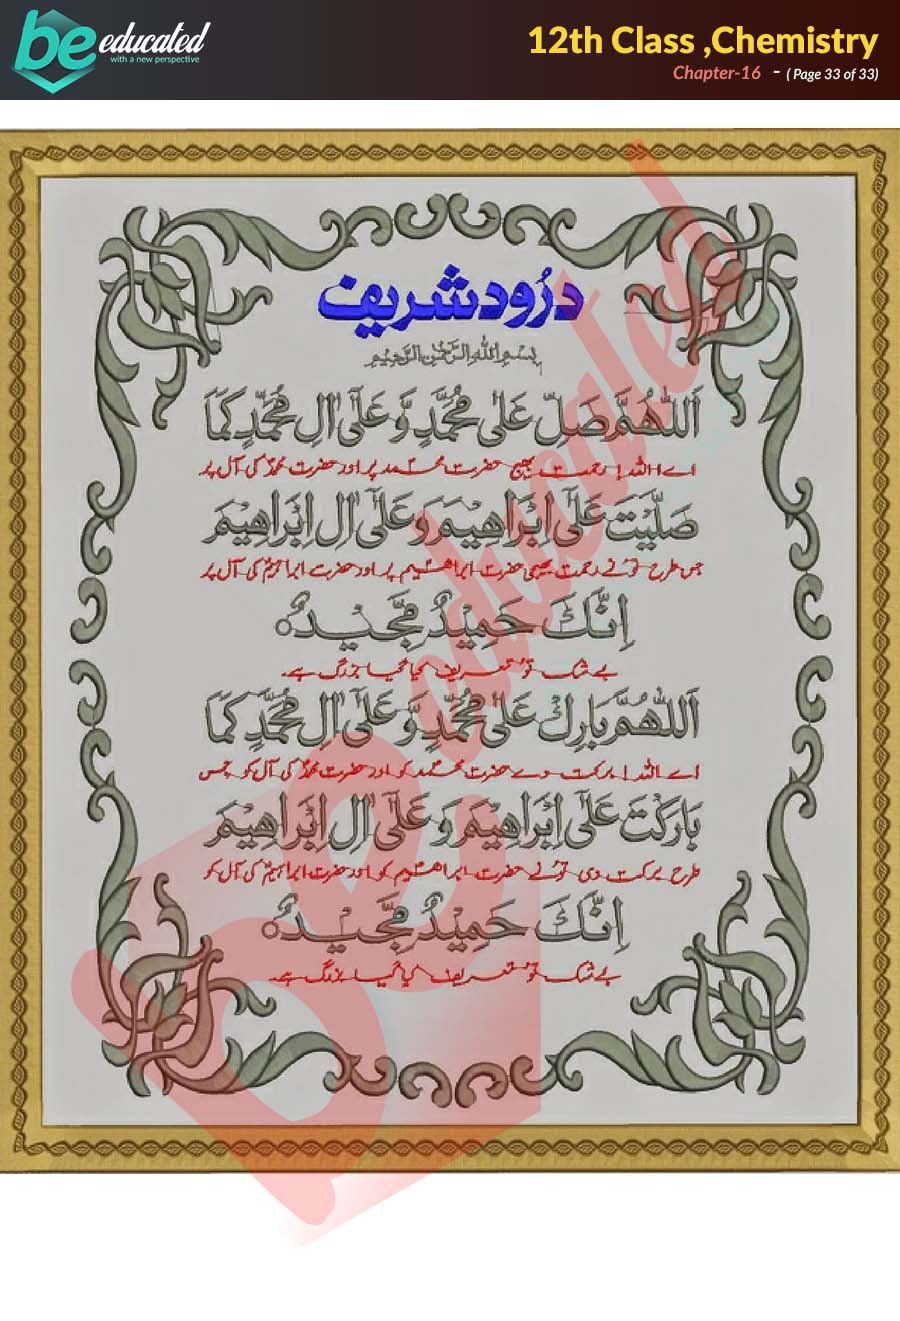 be educated
with a new perspective
12th Class ,Chemistry
Chapter-16 - ( Page 33 of 33)
درود شریف
بسم الله الرحمن الرحیم
اَللّٰهُمَّ صَلِّ عَلٰى مُحَمَّدٍ وَّ عَلٰٓى اٰلِ مُحَمَّدٍ كَمَا
اے اللہ! رحمت بھیج حضرت محمد پر اور حضرت محمد کی آل پر
صَلَّيْتَ عَلٰٓى اِبْرَاهِيْمَ وَ عَلٰٓى اٰلِ اِبْرَاهِيْمَ
جس طرح تو نے رحمت بھیجی حضرت ابراھیم پر اور حضرت ابراہیم کی آل پر
اِنَّكَ حَمِيْدٌ مَّجِيْدٌ ہ
بے شک تو تعریف کیا گیا بزرگ ہے۔
اَللّٰهُمَّ بَارِكْ عَلٰى مُحَمَّدٍ وَّ عَلٰٓى اٰلِ مُحَمَّدٍ كَمَا
اے اللہ! برکت دے حضرت محمد کو اور حضرت محمد کی آل کو جس
بَارَكْتَ عَلٰٓى اِبْرَاهِيْمَ وَ عَلٰٓى اٰلِ اِبْرَاهِيْمَ
طرح برکت دی تو نے حضرت ابراھیم کو اور حضرت ابراہیم کی آل کو
اِنَّكَ حَمِيْدٌ مَّجِيْدٌ ہ
بے شک تو تعریف کیا گیا بزرگ ہے۔
be educated